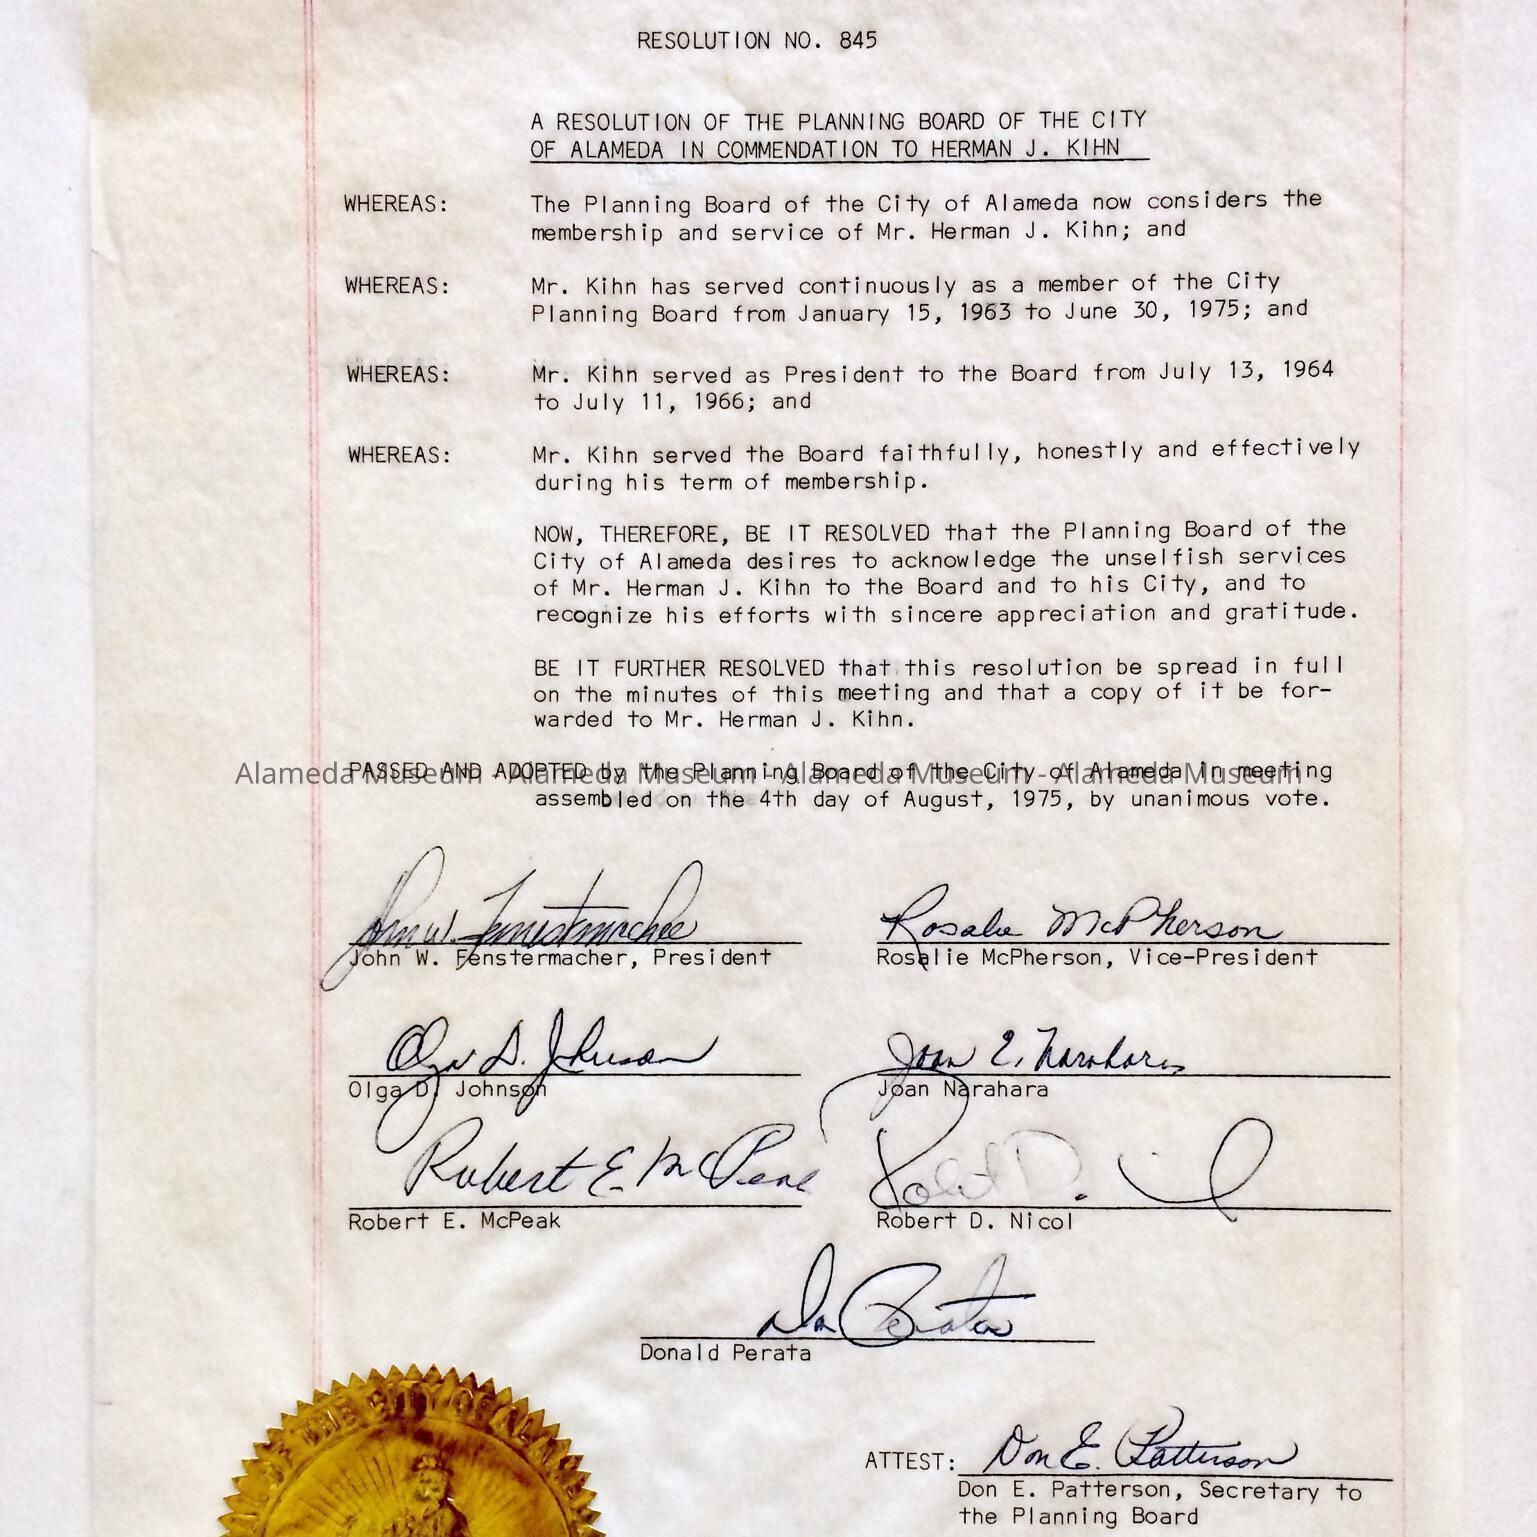 RESOLUTION NO. 845
A RESOLUTION OF THE PLANNING BOARD OF THE CITY
OF ALAMEDA IN COMMENDATION TO HERMAN J. KIHN
WHEREAS: The Planning Board of the City of Alameda now considers the
membership and service of Mr. Herman J. Kihn; and
WHEREAS: Mr. Kihn has served continuously as a member of the City
Planning Board from January 15, 1963 to June 30, 1975; and
WHEREAS: Mr. Kihn served as President to the Board from July 13, 1964
to July 11, 1966; and
WHEREAS: Mr. Kihn served the Board faithfully, honestly and effectively
during his term of membership.
NOW, THEREFORE, BE IT RESOLVED that the Planning Board of the
City of Alameda desires to acknowledge the unselfish services
of Mr. Herman J. Kihn to the Board and to his City, and to
recognize his efforts with sincere appreciation and gratitude.
BE IT FURTHER RESOLVED that this resolution be spread in full
on the minutes of this meeting and that a copy of it be for-
warded to Mr. Herman J. Kihn.
PASSED AND ADOPTED by the Planning Board of the City of Alameda in meeting
Alameda Museum - Alameda Museum - Alameda Museum - Alameda Museum
assembled on the 4th day of August, 1975, by unanimous vote.
John W. Fenstermacher Rosalie McPherson
John W. Fenstermacher, President Rosalie McPherson, Vice-President
Olga D. Johnson Joan E. Narahara
Olga D. Johnson Joan Narahara
Robert E. McPeak Robert D. Nicol
Robert E. McPeak Robert D. Nicol
Don Perata
Donald Perata
ATTEST: Don E. Patterson
Don E. Patterson, Secretary to
the Planning Board
OF THE CITY OF ALAMEDA